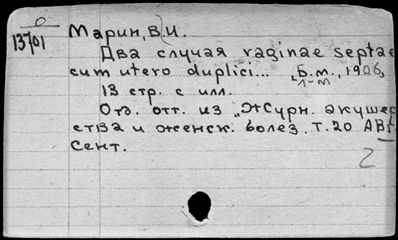 О
13701
Марин, В.И.
Два случая vaginae septae
cum utero duplici... Б.м., 1906,
13 стр. с илл.
Отд. отт. из „Журн. акушер
ства и женск. болез. т.20 АВ
Сент.
2